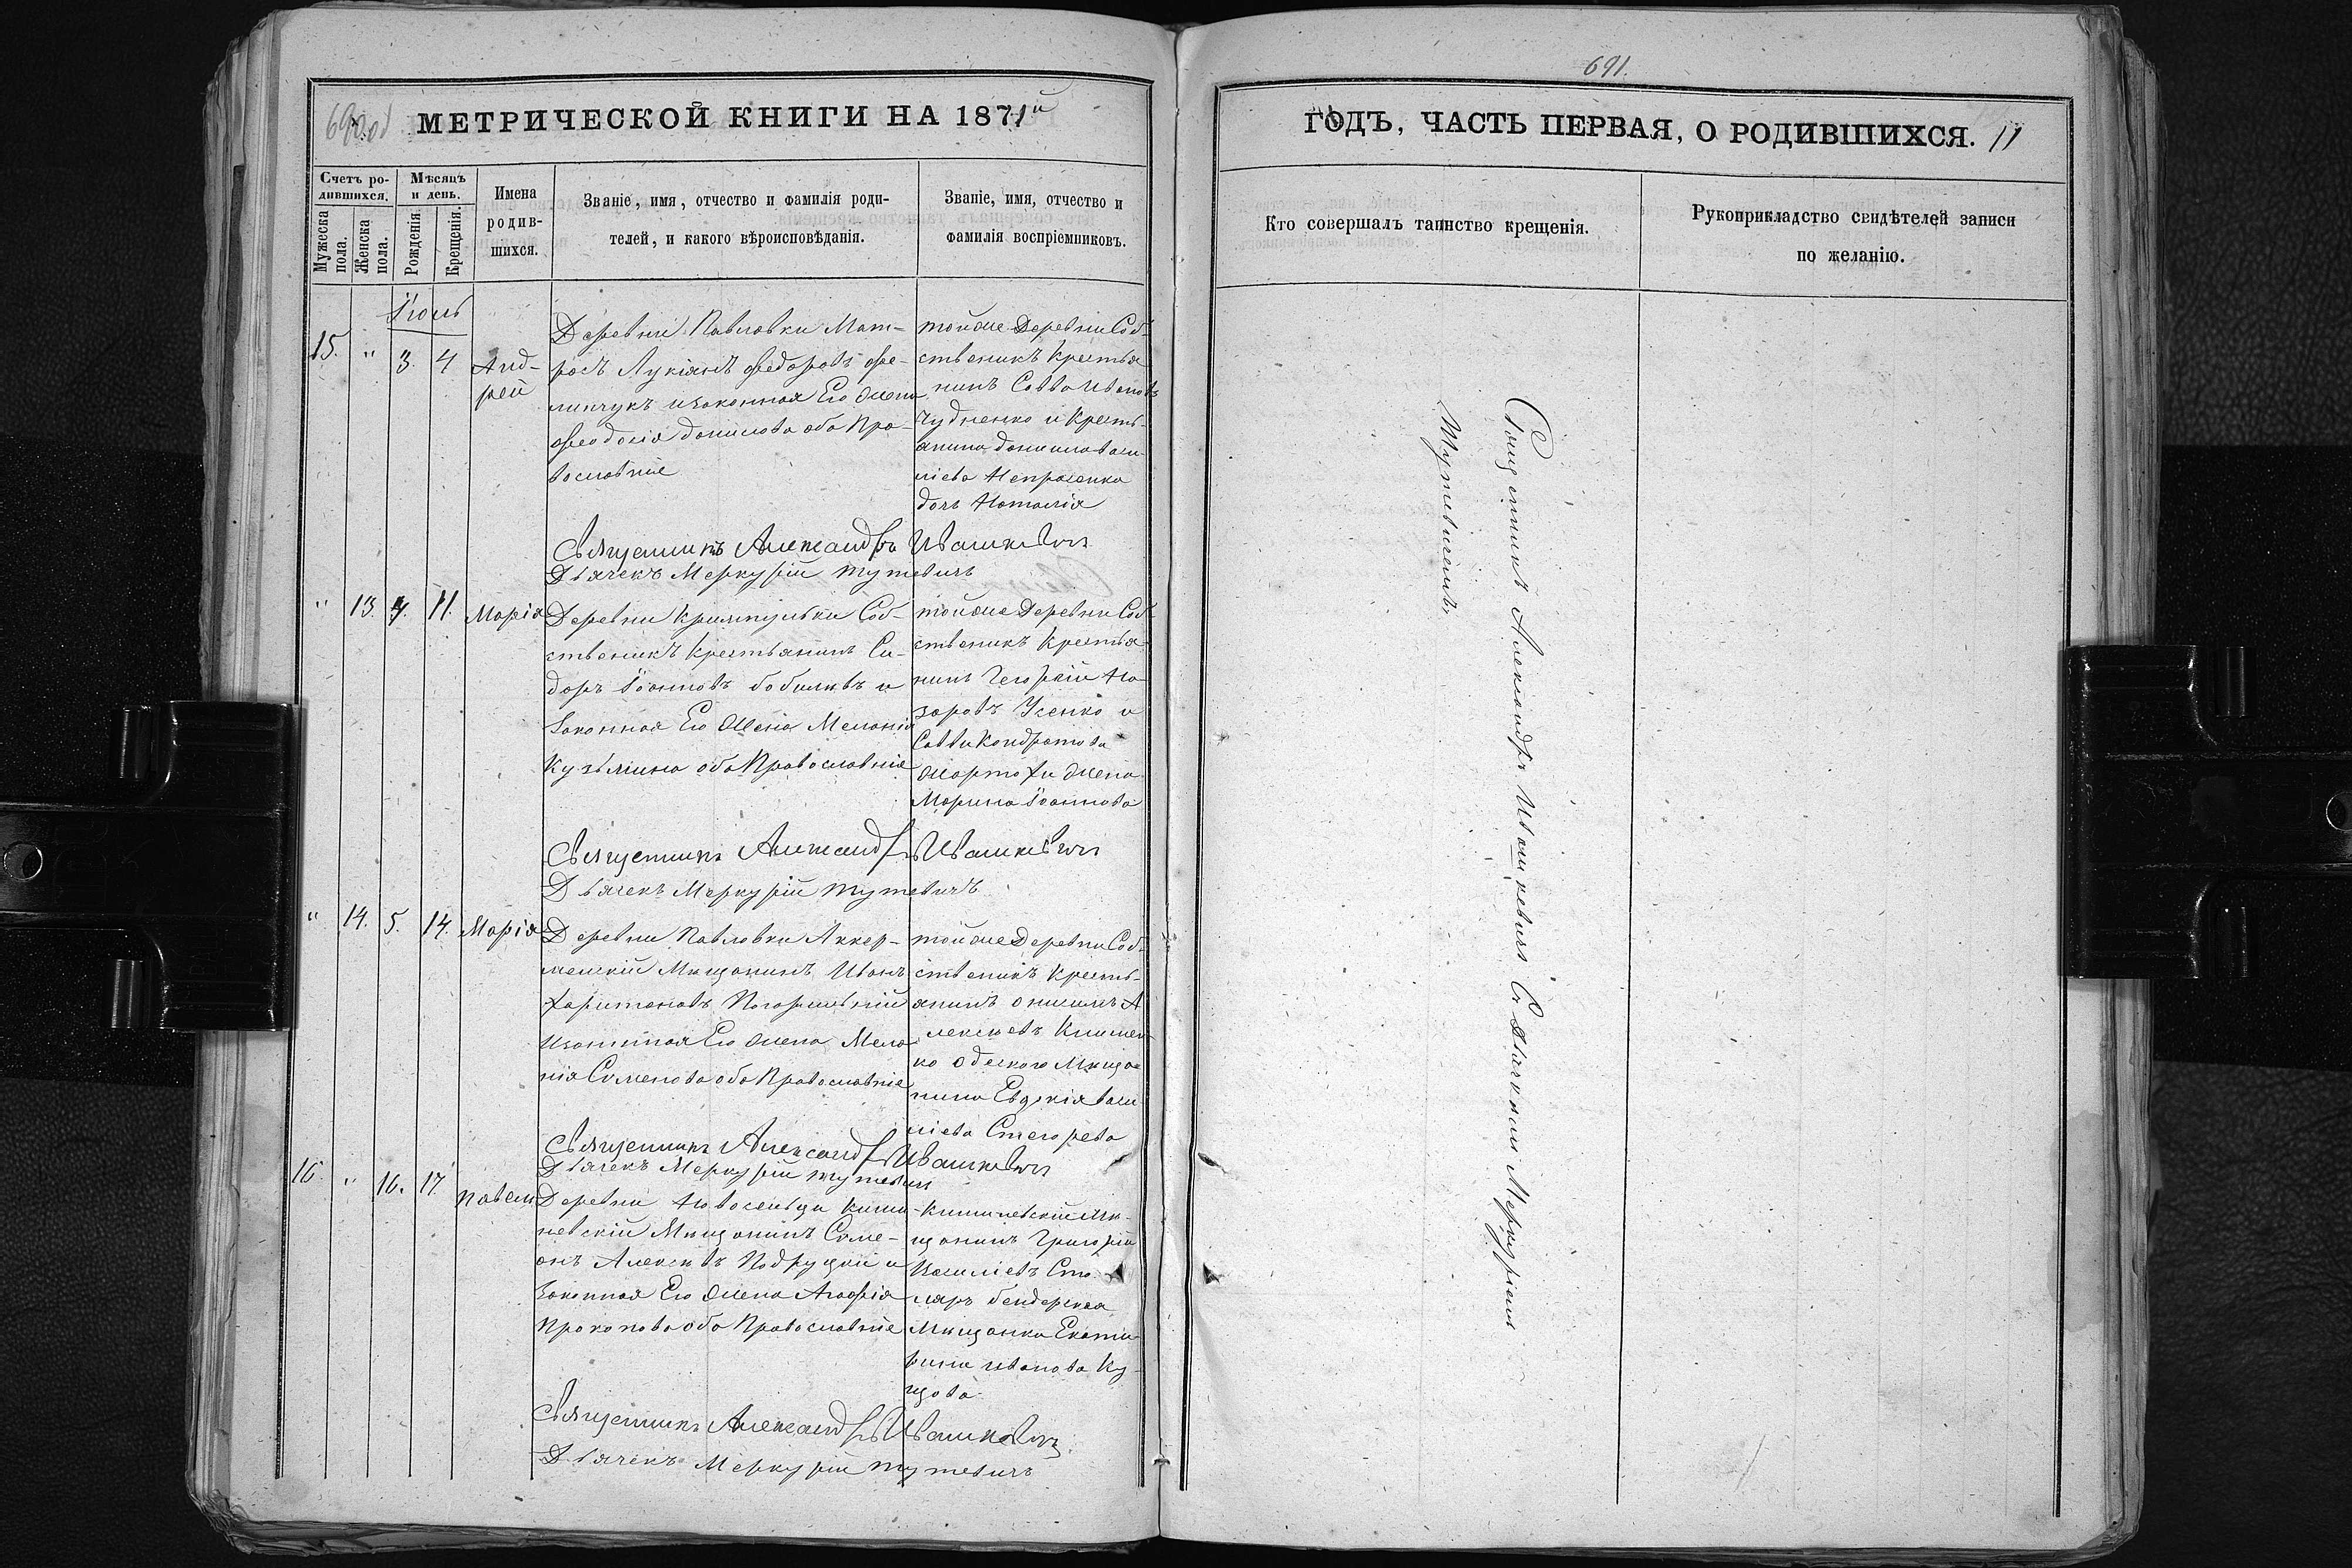 690 об
МЕТРИЧЕСКОЙ КНИГИ НА 1871й
Счетъ ро-
дившихся.
Мужеска пола.
Женска пола.
Мѣсяцъ и день.
Рожденія.
Крещенія.
Имена
родив-
шихся.
Званіе, имя, отчество и фамилія роди-
телей, и какого вѣроисповѣданія.
Званіе, имя, отчество и
фамилія воспріемниковъ.
15. " 3. 4 Анд-
рей
Деревни Павловки Мат-
росъ Лукіянъ Федоровъ
и законная Его жена
Феодосія Данилова оба Пра-
вославніе
той же Деревни Соб-
ственикъ Крестья
нинъ Савва Ивановъ
Чудненко и Кресть-
янина Данила Васи-
ліева
дочь Наталія
Священникъ Александръ Ивашкевичъ
Дьячекъ Меркурій Тутевичъ
" 13. 7. 11. Марія
Деревни Соб-
ственикъ Крестьянинъ Си-
доръ Іоанновъ и
Законная Его Жена Меланія
Кузьмина оба Православніе
той же Деревни Соб-
ственикъ Крестья-
нинъ Георгій На-
заровъ Усенко и
Савви Кондратова
жена
Марина Іоаннова
Священникъ Александръ Ивашкевичъ
Дьячекъ Меркурій Тутевичъ
" 14. 5. 14. Марія
Деревни Павловки Аккер-
менскій Мищанинъ Иванъ
Харитоновъ
Его жена Мела-
нія Семенова оба Православніе
той же Деревни Соб-
ственикъ Кресть-
янинъ Онисимъ А
лексіевъ Климен-
ко Одеского Мища-
нина Евдокія Васи-
ліева
Священникъ Александръ Ивашкевичъ
Дьячекъ Меркурій Тутевичъ
16. " 16. 17. Павелъ
Деревни Новоселици Киши-
невскій Мищанинъ Симе-
онъ Алексіевъ Подруцкій и
Законная Его Жена Агафія
Прокопова оба Православніе
Кишиневскій Ми-
щанинъ Григорій
Василіевъ Сто-
ляръ Бендерская
Мищанка Екате-
рина Иванова Ку-
цова
Священникъ Александръ Ивашкевичъ
Дьячекъ Меркурій Тутевичъ
691.
ГОДЪ, ЧАСТЬ ПЕРВАЯ, О РОДИВШИХСЯ. 11
Кто совершалъ таинство крещенія.
Рукоприкладство свидѣтелей записи
по желанію.
Священникъ Александръ Ивашкевичъ Съ Дьячкомъ Меркуріемъ
Тутевичемъ